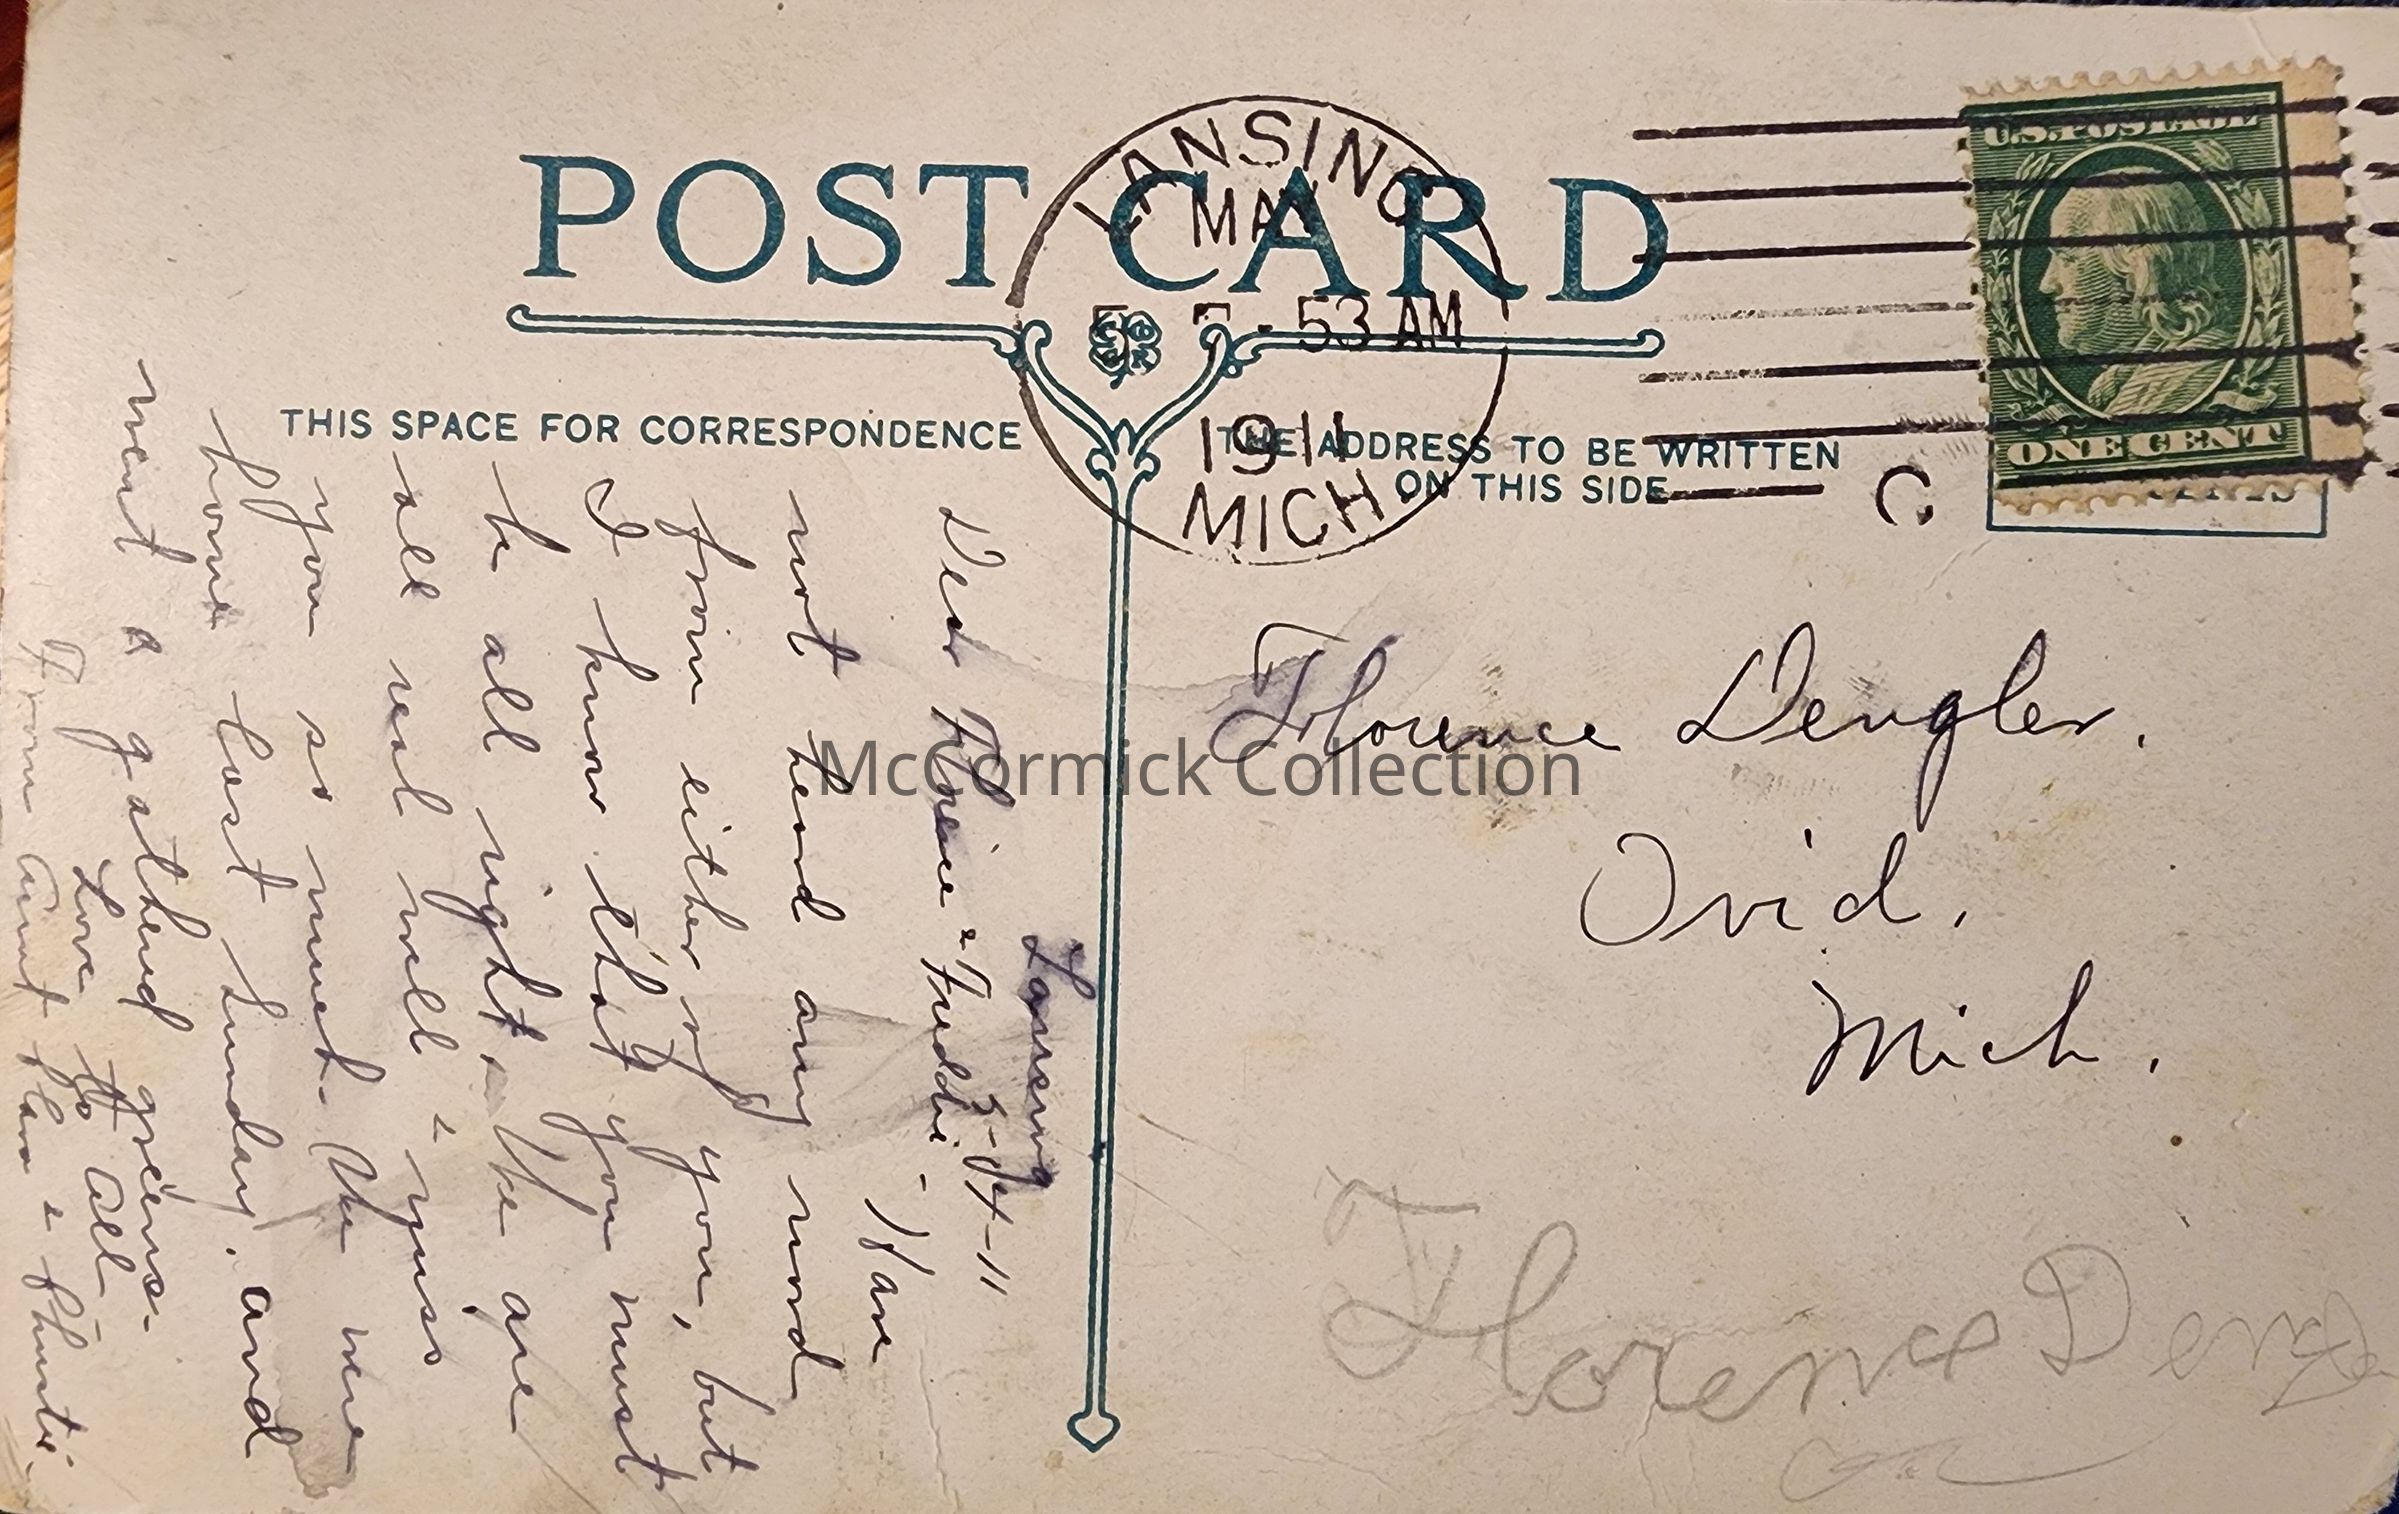 POST CARD
LANSING
MAY
5 7-53 AM
1911
MICH.
U.S. POSTAGE
ONE CENT
THIS SPACE FOR CORRESPONDENCE
THE ADDRESS TO BE WRITTEN
ON THIS SIDE
C
Lansing
5-04-11
Dear & Freddie - Have
not heard any word
from either of you, but
I know that you must
be all right. We are
all real well & miss
you so much. We were
home last Sunday, and
went a gathering greens.
Love to All
From Aunt &
Florence Dengler.
Ovid,
Mich.
Florence Deng
McCormick Collection